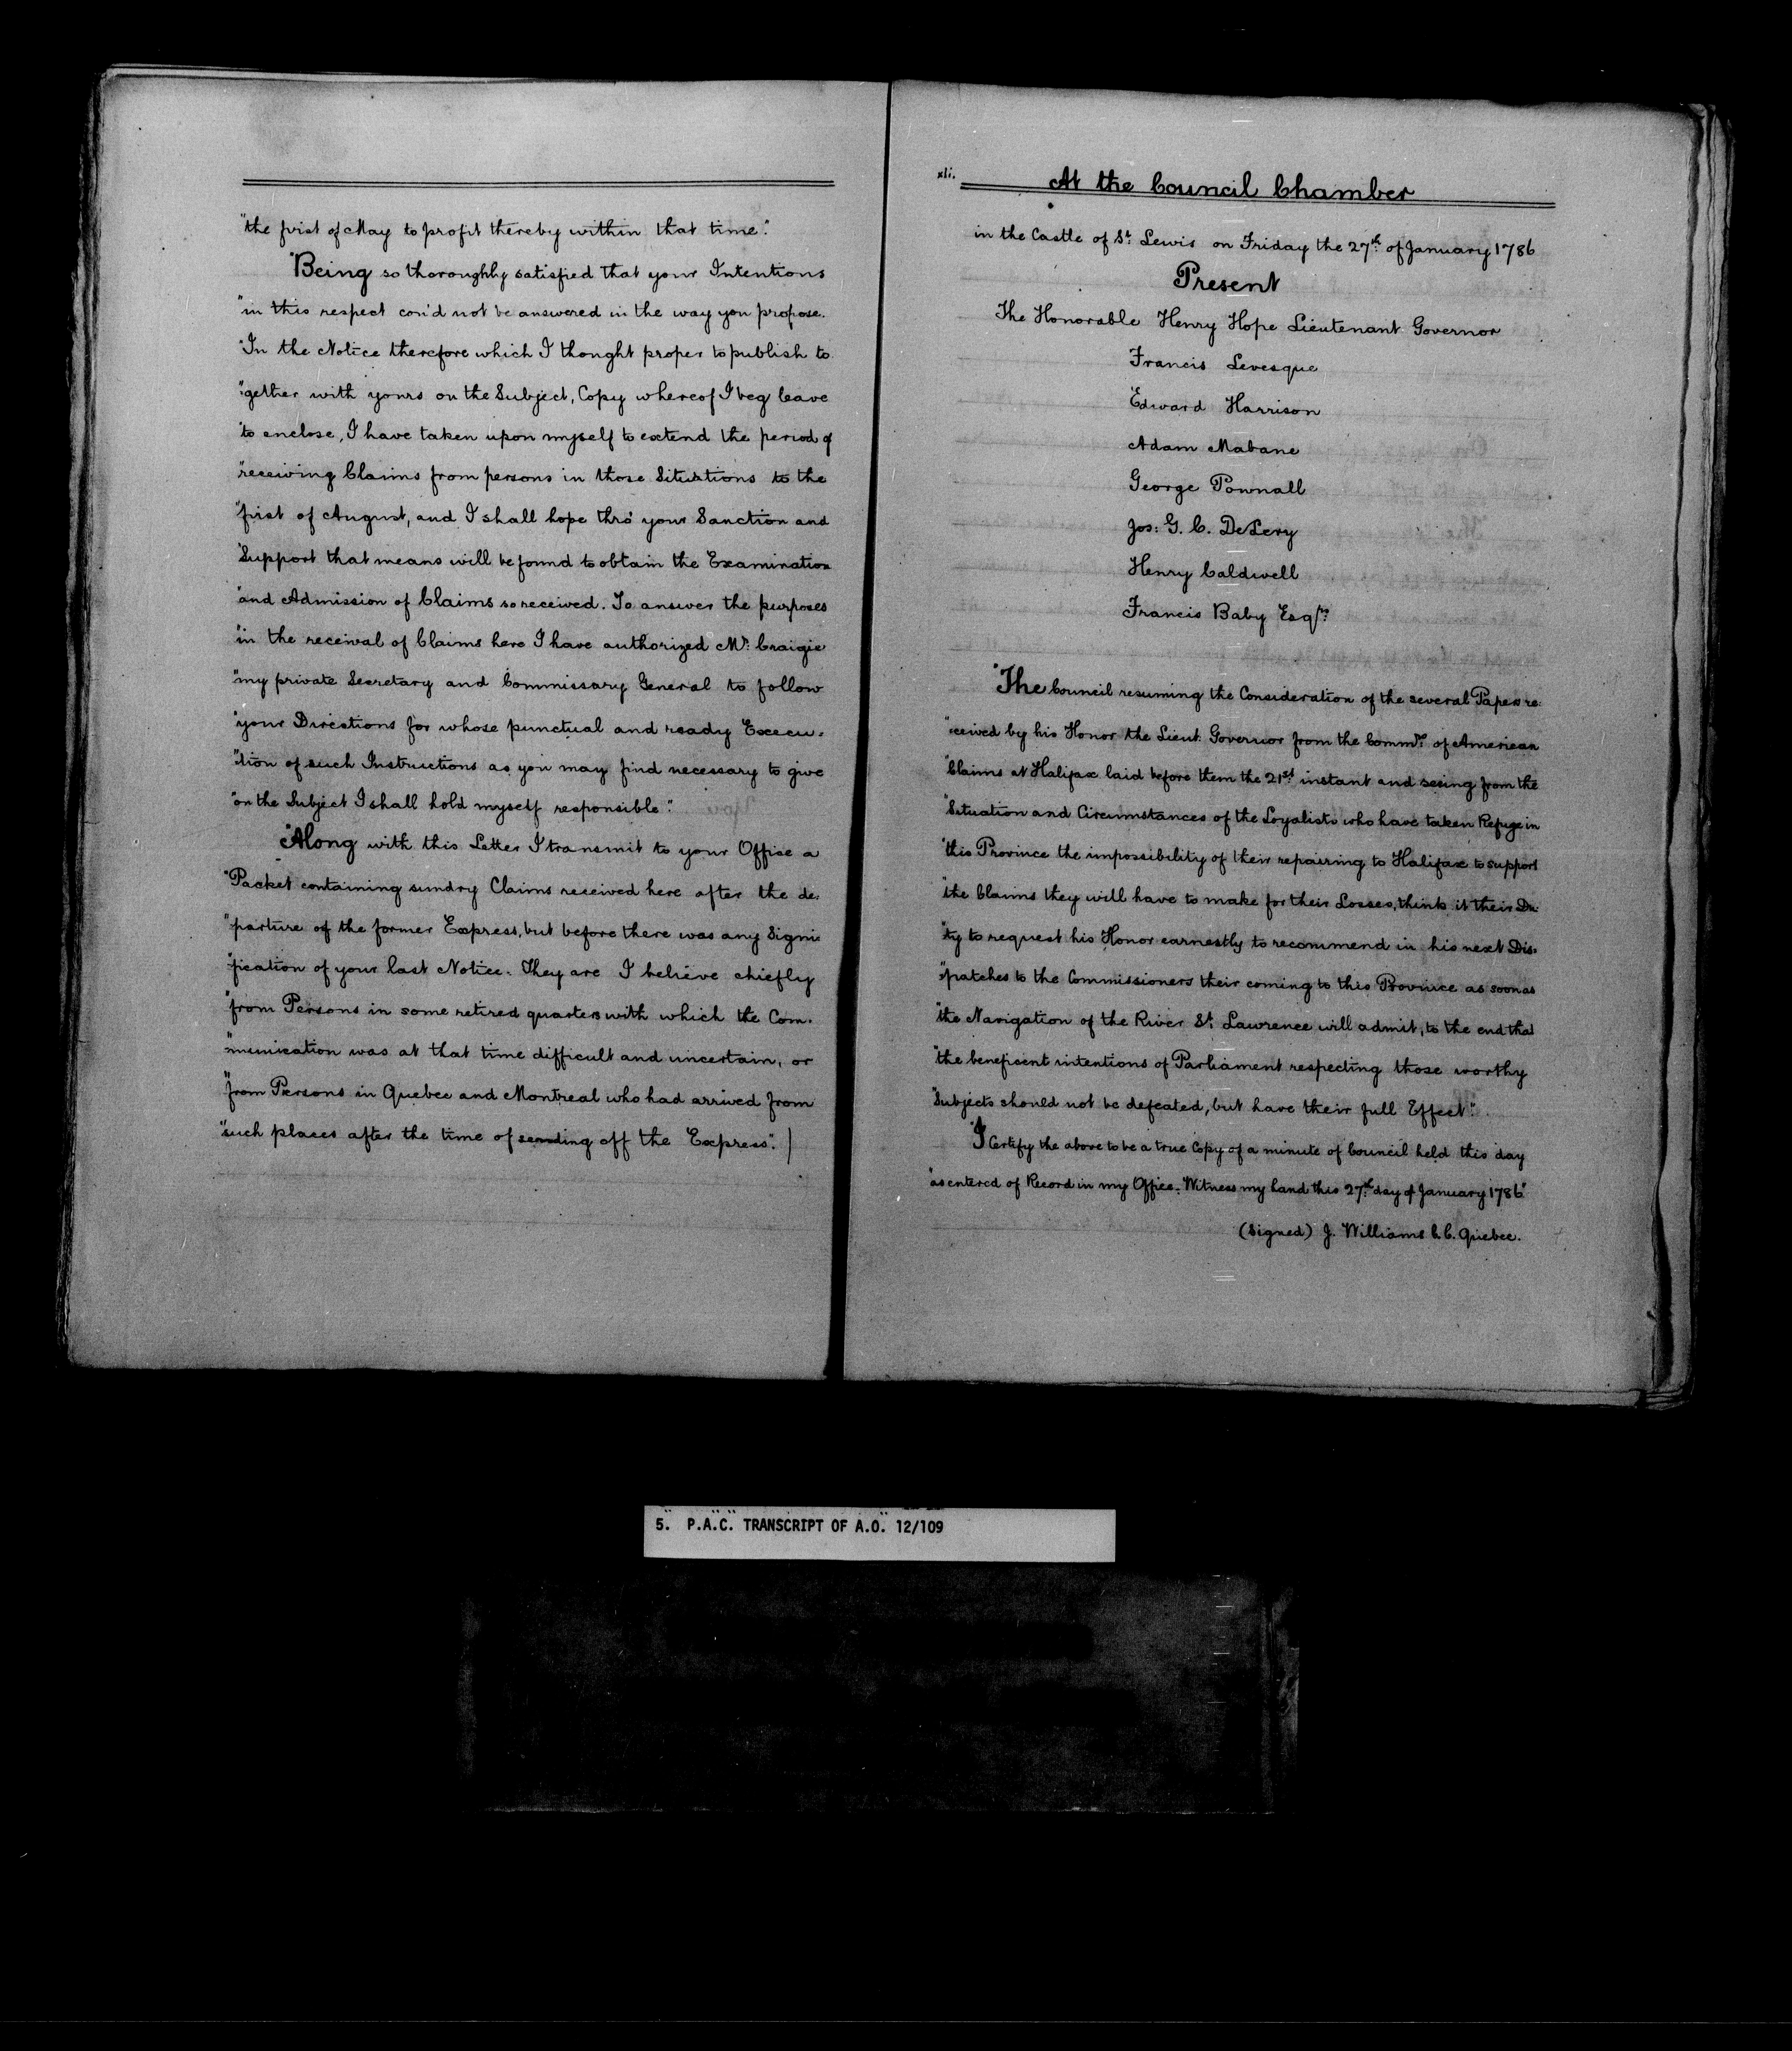 "the first of May to profit thereby within that time".
"Being so thoroughly satisfied that your Intentions
"in this respect cou'd not be answered in the way you propose.
"In the Notice therefore which I thought proper to publish to
"gether with yours on the Subject, Copy whereof I beg leave
"to enclose, I have taken upon myself to extend the period of
"receiving Claims from persons in those Situations to the
"first of August, and I shall hope thro' your Sanction and
"Support that means will be found to obtain the Examination
"and Admission of Claims so received. To answer the purposes
"in the receival of Claims here I have authorized Mr. Craigie
"my private Secretary and Commissary General to follow
"your Directions for whose punctual and ready Execu-
"tion of such Instructions as you may find necessary to give
"on the Subject I shall hold myself responsible".
"Along with this Letter I transmit to your Office a
"Packet containing sundry Claims received here after the de-
"parture of the former Express, but before there was any Signi-
"fication of your last Notice. They are I believe chiefly
"from Persons in some retired quarters with which the Com-
"munication was at that time difficult and uncertain, or
"from Persons in Quebec and Montreal who had arrived from
"such places after the time of sending off the Express".
xli.
At the Council Chamber
in the Castle of St. Lewis on Friday the 27th. of January 1786
Present
The Honorable Henry Hope Lieutenant Governor
Francis Levesque
Edward Harrison
Adam Mabane
George Pownall
Jos: G. C. DeLery
Henry Caldwell
Francis Baby Esqrs.
"The Council resuming the Consideration of the several Papers re-
"ceived by his Honor the Lieut. Governor from the Commrs. of American
"Claims at Halifax laid before them the 21st. instant and seeing from the
"Situation and Circumstances of the Loyalists who have taken Refuge in
"this Province the impossibility of their repairing to Halifax to support
"the Claims they will have to make for their Losses, think it their Du-
"ty to request his Honor earnestly to recommend in his next Dis-
"patches to the Commissioners their coming to this Province as soon as
"the Navigation of the River St. Lawrence will admit, to the end that
"the beneficent intentions of Parliament respecting those worthy
"Subjects should not be defeated, but have their full Effect".
"I Certify the above to be a true Copy of a minute of Council held this day
"as entered of Record in my Office. Witness my hand this 27th. day of January 1786"
(Signed) J. Williams C. C. Quebec.
5. P.A.C. TRANSCRIPT OF A.O. 12/109